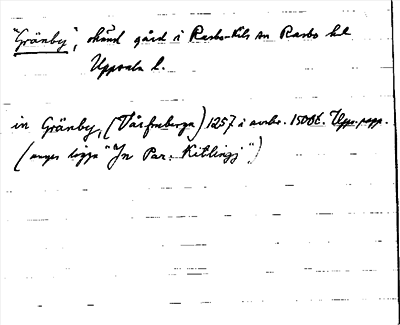 "Gränby", okänd gård i Rasbo-Kils sn Rasbo hd
Uppsala l.
in Gränby, (Vårfruberga) 1257 i avskr. 1500t. Upps. papp.
(anges ligga "In Par. Kitlingj")